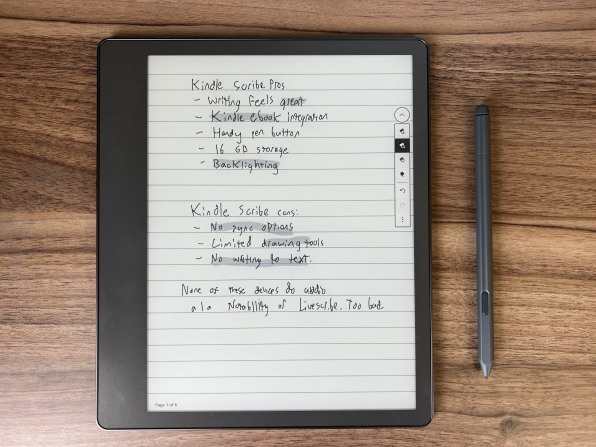 Kindle Scribe Pros
- Writing feels great
- Kindle ebook integration
- Handy pen button
- 16 GB storage
- Backlighting
Kindle Scribe cons:
- No sync options
- Limited drawing tools
- No writing to text.
None of these devices do audio
a la Notability of Livescribe. Too bad.
Page 1 of 6